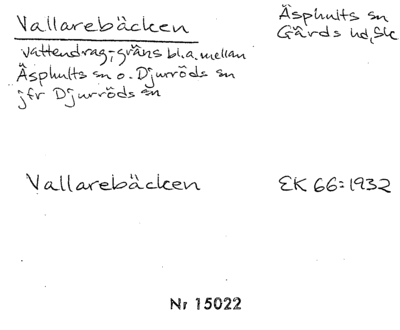 Vallarebäcken
Äsphults sn
Gärds hd, Sk
vattendrag; gräns bl.a. mellan
Äsphults sn o. Djurröds sn
jfr Djurröds sn
Vallarebäcken
EK 66:1932
Nr 15022